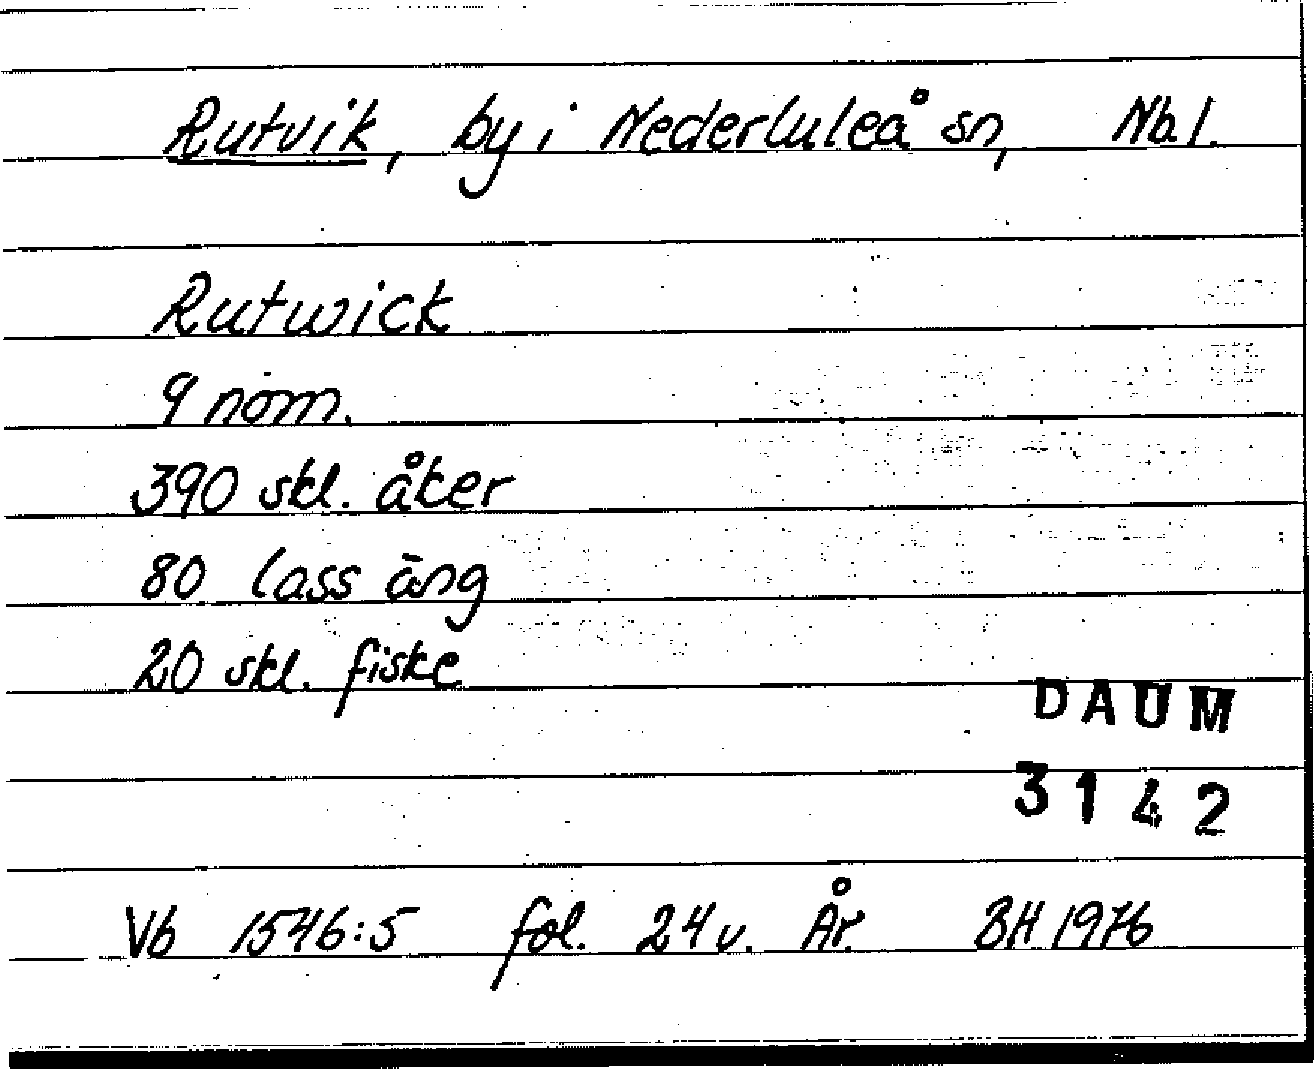 Rutvik, by i Nederluleå sn, Nb.l.
Rutwick
9 nom.
390 skl. åker
80 lass äng
20 skl. fiske
DAUM
3142
Vb 1546:5 fol. 24 v. År. BH 1976